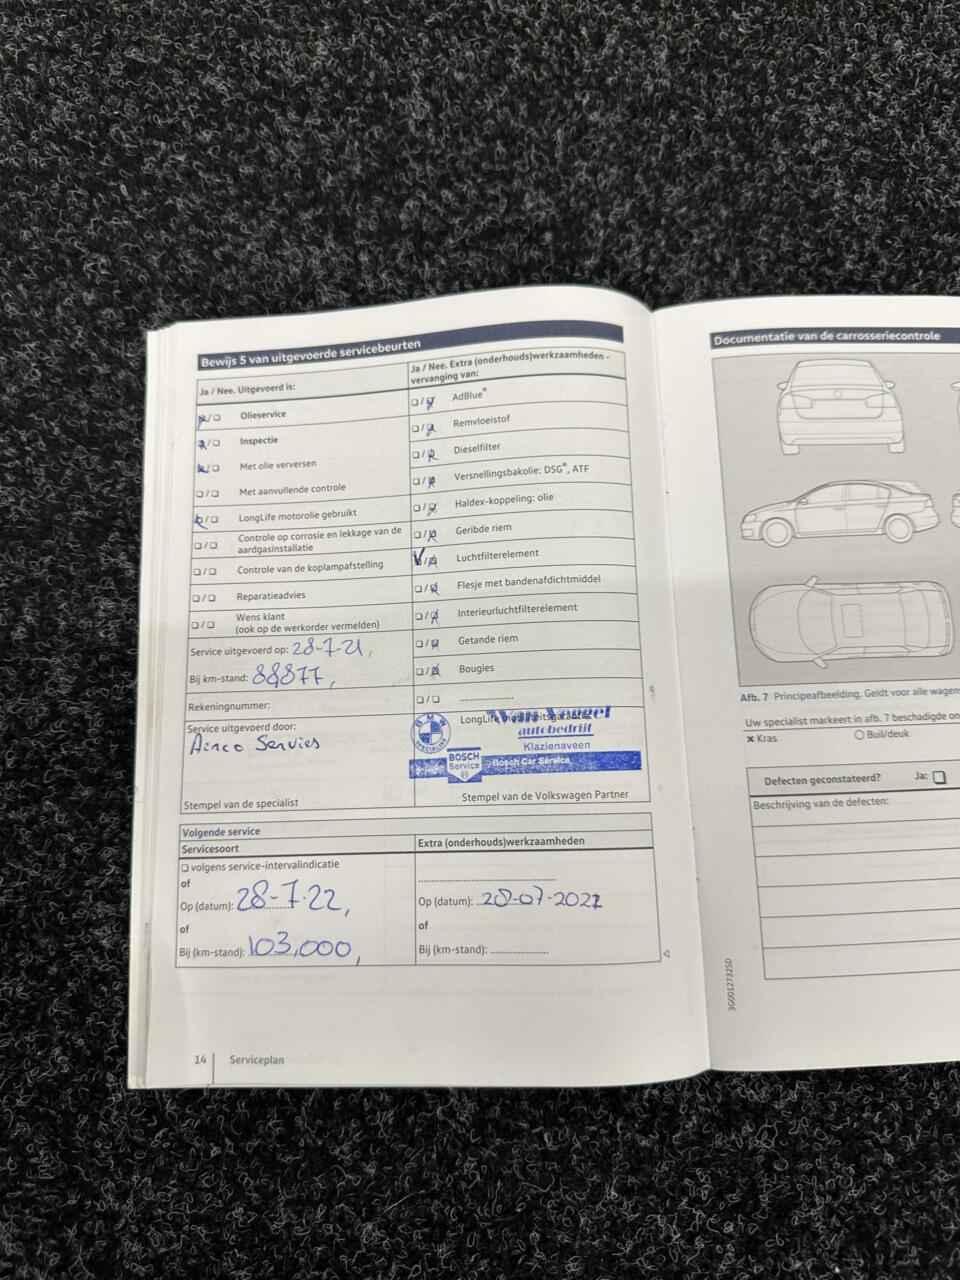 Bewijs 5 van uitgevoerde servicebeurten
Ja / Nee. Uitgevoerd is:
Olieservice
Inspectie
Met olie verversen
Met aanvullende controle
LongLife motorolie gebruikt
Controle op corrosie en lekkage van de
aardgasinstallatie
Controle van de koplampafstelling
Reparatieadvies
Wens klant
(ook op de werkorder vermelden)
Service uitgevoerd op: 28-7-21,
Bij km-stand: 88877,
Rekeningnummer:
Service uitgevoerd door:
Airco Servies
Stempel van de specialist
Ja / Nee. Extra (onderhouds)werkzaamheden -
vervanging van:
AdBlue®
Remvloeistof
Dieselfilter
Versnellingsbakolie: DSG®, ATF
Haldex-koppeling: olie
Geribde riem
Luchtfilterelement
Flesje met bandenafdichtmiddel
Interieurluchtfilterelement
Getande riem
Bougies
LongLife
BMW
autobedrijf
Klazienaveen
BOSCH
Service
Bosch Car Service
Stempel van de Volkswagen Partner
Volgende service
Servicesoort
volgens service-intervalindicatie
of
Op (datum): 28-7-22,
of
Bij (km-stand): 103,000,
Extra (onderhouds)werkzaamheden
Op (datum): 28-07-2022
of
Bij (km-stand):
14
Serviceplan
Documentatie van de carrosseriecontrole
Afb. 7 Principeafbeelding. Geldt voor alle wagen
Uw specialist markeert in afb. 7 beschadigde
Kras
Buil/deuk
Defecten geconstateerd? Ja:
Beschrijving van de defecten:
3G0012732SD